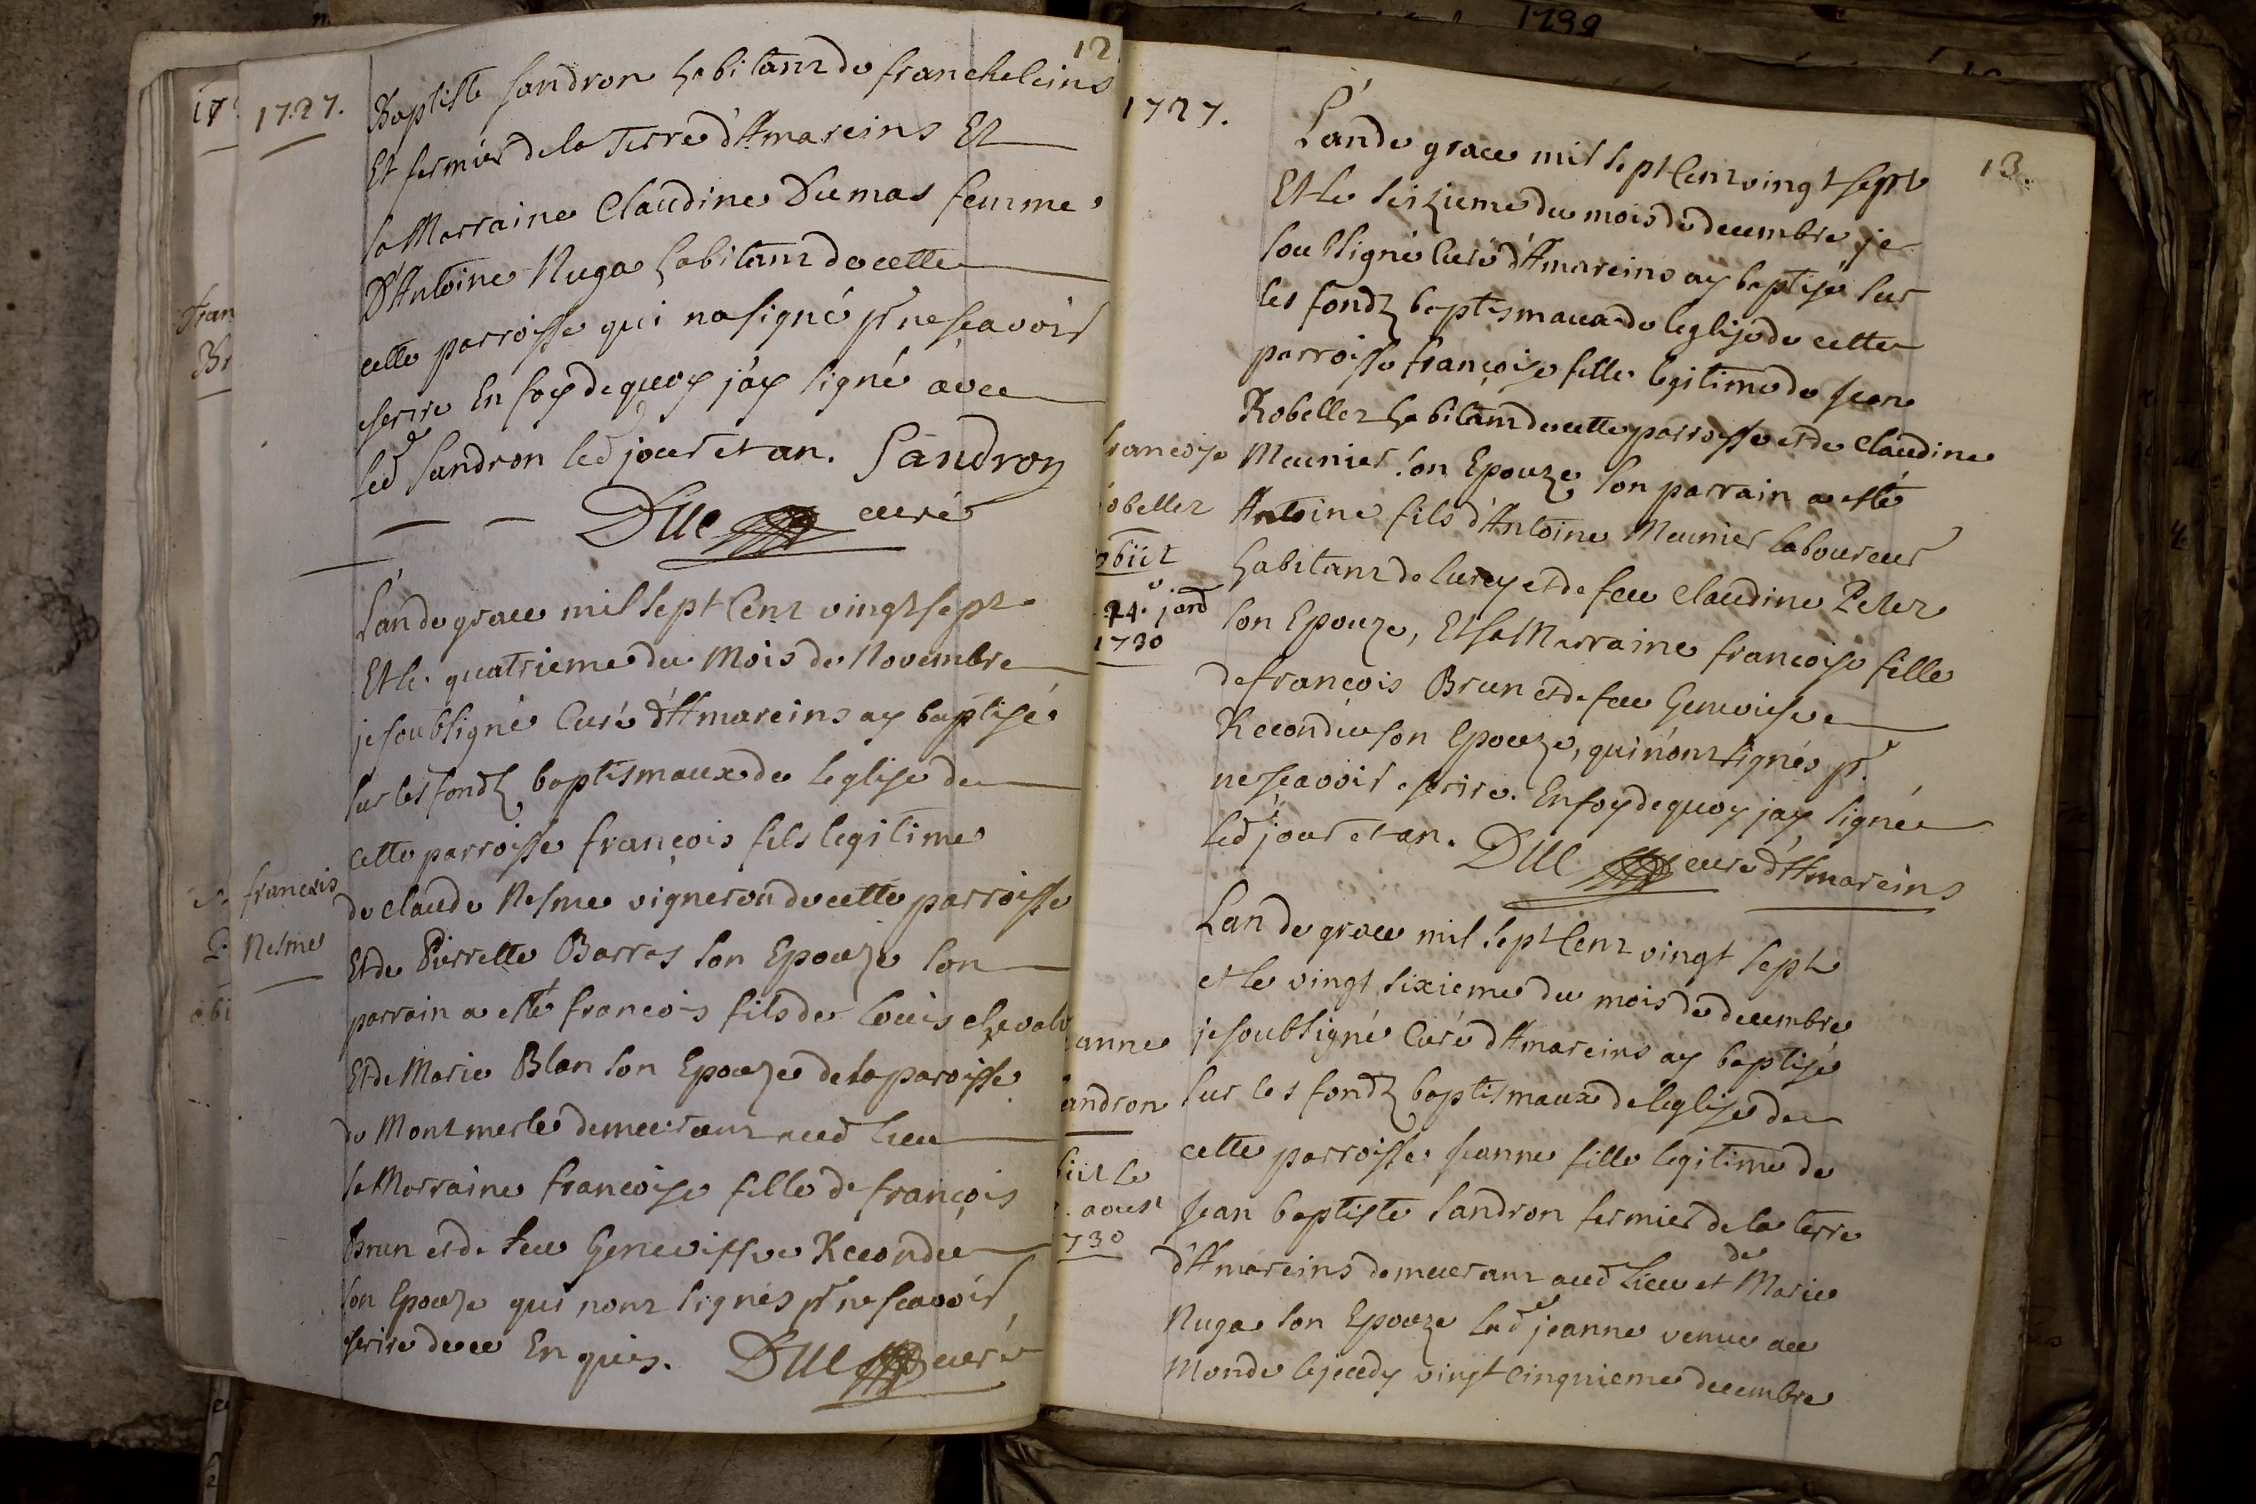 1739
12
1727.
Baptiste Sandron habitant de francheleins
Et fermier de la Terre d'Amareins Et
sa Marraine Claudine Dumas femme
D'Antoine Nuga habitant de cette
cette parroisse qui na signé pr ne sçavoir
escrire En foy de quoy j'ay signé avec
led Sandron led jour et an. Sandron
Duc curé
L'an de grace mil sept Cent vingt sept
Et le quatrieme du Mois de Novembre
je soubsigné Curé d'Amareins ay baptisé
sur les fondz baptismaux de leglise de
cette parroisse françois fils legitime
francois
de claude Nesme vigneron de cette parroisse
Nesme
Et de Pierrette Barras son Epouze son
parrain a esté francois fils de Louis cheval
Et de Marie Blan son Epouze de la paroisse
de Montmerle demeurant aud Lieu
sa Marraine francoise fille de françois
Brun et de feue Genevieve
son Epouze qui nont signés pr ne scavoir
escrire de ce Enquis. Duc curé
1727.
13.
L'an de grace mil sept Cent vingt sept
Et le seizieme du mois de decembre je
soubsigné Curé d'Amareins ay baptisé sur
les fondz baptismaux de leglise de cette
parroisse françoise fille legitime de Jean
Robellet habitant de cette parroisse et de Claudine
francoise
Meunier son Epouze, son parrain a esté
obellet
Antoine fils d'Antoine Meunier laboureur
obiit
habitant de lurcy et de feue Claudine
24e janv
son Epouze, Et sa Marraine françoise fille
1730
de francois Brun et de feue Genevieve
son Epouze, qui n'ont signés pr
ne sçavoir escrire. En foy de quoy jay signé
led jour et an. Duc curé d'Amareins
Lan de grace mil sept Cent vingt sept
et le vingt sixieme du mois de decembre
je soubsigné Curé d'Amareins ay baptisé
anne
sur les fondz baptismaux de leglise de
andron
cette parroisse Jeanne fille legitime de
iit le
Jean baptiste Sandron fermier de la terre
aoust
730
d'Amareins demeurant aud Lieu et de Marie
Nuga son Epouze lade jeanne venue au
Monde le jeudy vingt cinquieme decembre